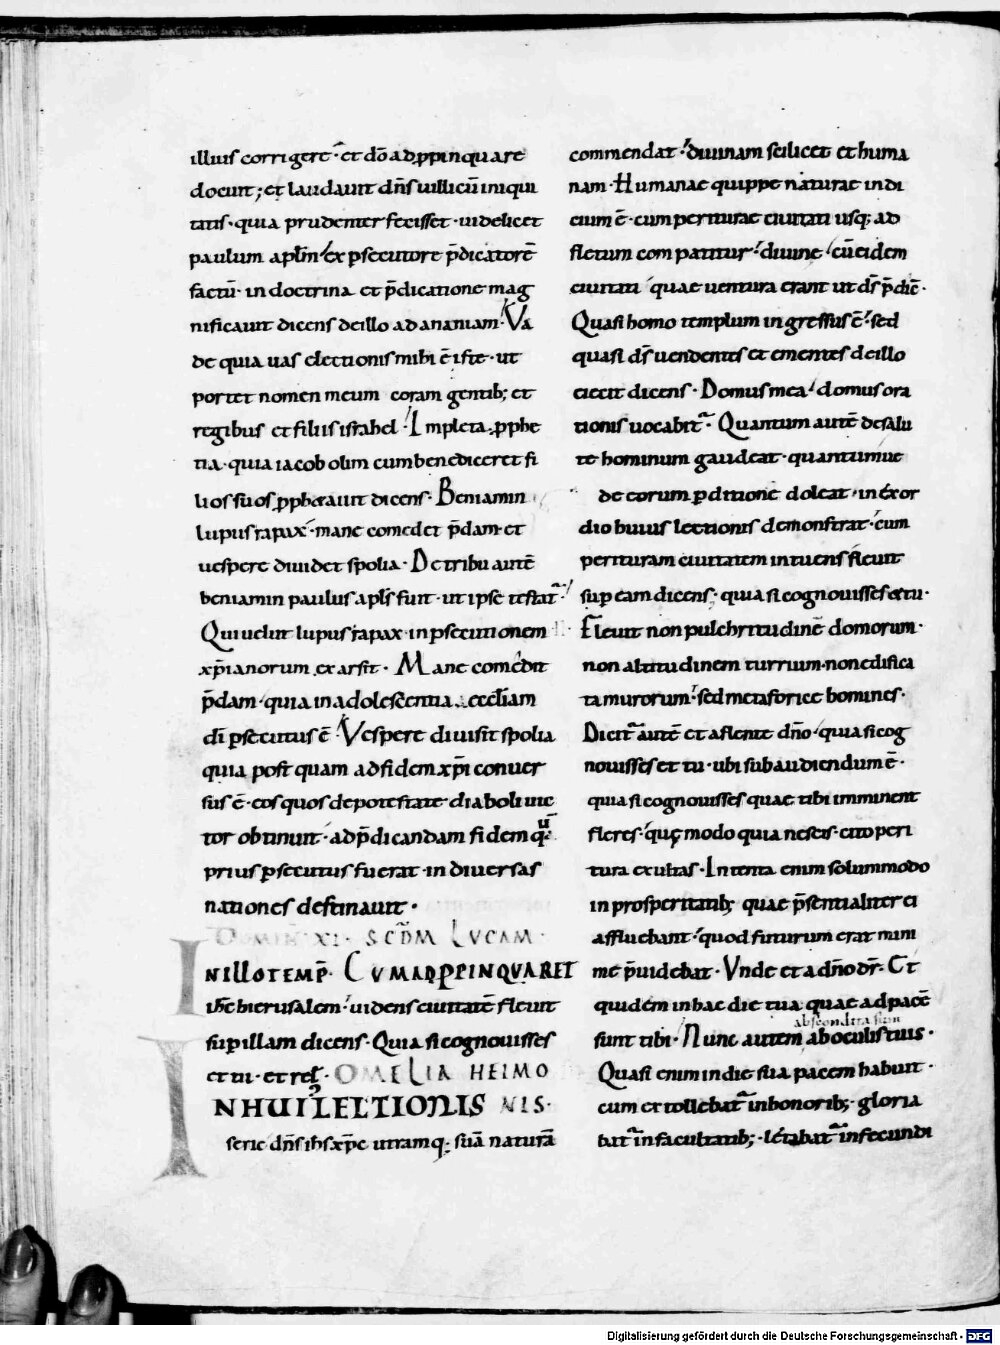 illius corrigere · et dō adp̱pinquare
docuit ; et laudauit dn̄s uillicū iniqui
tatis · quia prudenter fecisset · uidelicet
paulum apl̄m ex p̱secutore p̄dicatorē
factū · in doctrina et p̄dicatione mag
nificauit dicens de illo ad ananiam · Va
de quia uas electionis mihi ē iste · ut
portet nomen meum coram gentib; et
regibus et filiis israhel · Impleta p̱phe
tia · quia iacob olim cum benediceret fi
lios suos p̱phetauit dicens · Beniamin
lupus rapax · mane comedet p̄dam et
uespere diuidet spolia · De tribu autē
beniamin paulus apl̄s fuit · ut ipse testat̄ ·
Qui uelut lupus rapax · in p̱secutionem
xp̄ianorum exarsit · Mane comedit
p̄dam · quia in adolescentia eccl̄iam
dī p̱secutus ē · Vespere diuisit spolia
quia postquam ad fidem xp̄i conuer
sus ē · eos quos de potestate diaboli uic
tor obtinuit · ad p̄dicandam fidem quā
prius p̱secutus fuerat · in diuersas
nationes destinauit ·
DOMIN̄ XI · SCD̄M LVCAM ·
IN ILLO TEMP̄ · CVM ADP̱PINQVARET
ih̄c hierusalem · uidens ciuitatē fleuit
sup̱ illam dicens · Quia si cognouisses
et tu · et rel̄ · OMELIA HEIMO
IN HUI᾽ LECTIONIS NIS ·
serie dn̄s ih̄s xp̄c utramq; suā naturā
commendat · diuinam scilicet et huma
nam · Humanae quippe naturae indi
cium ē · cum periturae ciuitati usq; ad
fletum compatitur · diuine · cū eidem
ciuitati quae uentura erant ut dī p̄dic̄ ·
Quasi homo templum ingressus ē · sed
quasi dī uendentes et ementes de illo
eiecit dicens · Domus mea · domus ora
tionis uocabit̄ · Quantum autē de salu
te hominum gaudeat · quantumue
de eorum p̱ditione doleat · in exor
dio huius lectionis demonstrat · cum
perituram ciuitatem intuens fleuit
sup̱ eam dicens · quia si cognouisses et tu ·
Fleuit non pulchritudinē domorum ·
non altitudinem turrium · non edifica
ta murorum · sed metaforice homines ·
Dicit̄ autē et a flente dn̄o · quia si cog
nouisses et tu · ubi subaudiendum ē ·
quia si cognouisses quae tibi imminent
fleres · quę modo quia nescis · cito peri
tura exultas · Intenta enim solummodo
in prosperitatib; quae p̄sentialiter ei
affluebant · quod futurum erat mini
me p̄uidebat · Vnde et a dn̄o dī · Et
quidem in hac die tua quae ad pacē
sunt tibi · Nunc autem abscondita sunt ab oculis tuis ·
Quasi enim in die sua pacem habuit ·
cum extollebat̄ in honorib; · gloria
bat̄ in facultatib; · lętabat̄ in fecundi
Digitalisierung gefördert durch die Deutsche Forschungsgemeinschaft - DFG